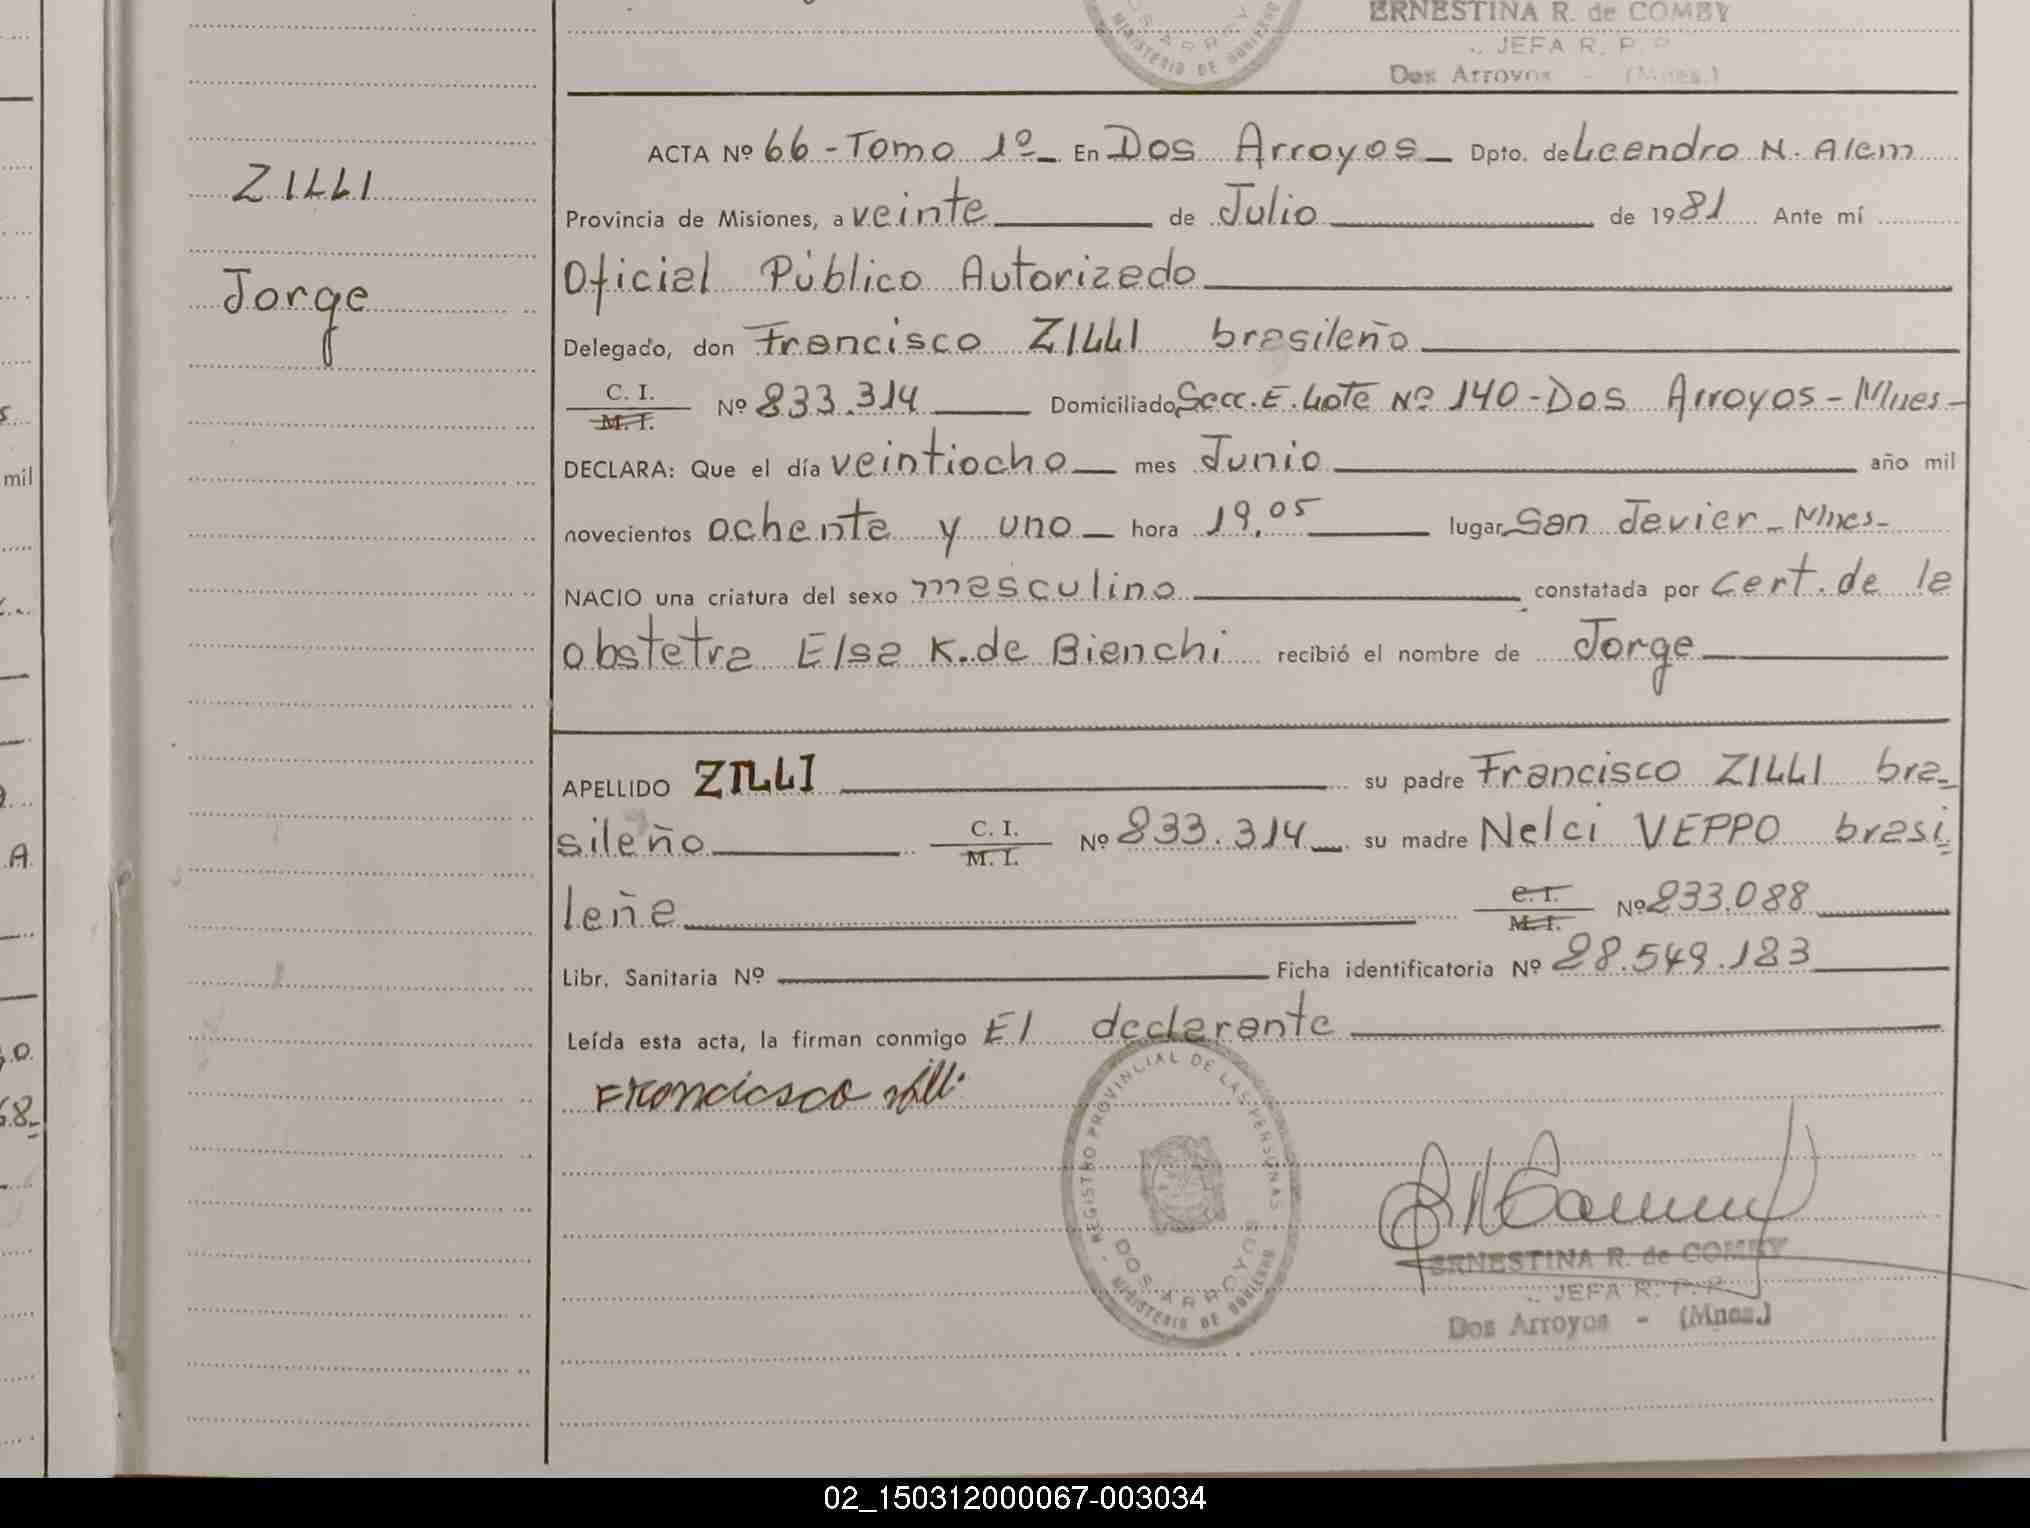 ERNESTINA R. de COMBY
JEFA R. P. P.
Dos Arroyos - (Mnes.)
MINISTERIO DE GOBIERNO
ZILLI
Jorge
ACTA Nº 66 - Tomo 1º - En Dos Arroyos - Dpto. de Leandro N. Alem
Provincia de Misiones, a veinte de Julio de 1981 Ante mí
Oficial Público Autorizado
Delegado, don Francisco ZILLI brasileño
C. I.
M. I. Nº 833.314 Domiciliado Secc. E. Lote Nº 140 - Dos Arroyos - Mnes -
DECLARA: Que el día veintiocho mes Junio año mil
novecientos ochenta y uno hora 19,05 lugar San Javier - Mnes -
NACIO una criatura del sexo masculino constatada por Cert. de la
obstetra Elsa K. de Bianchi recibió el nombre de Jorge
APELLIDO ZILLI su padre Francisco ZILLI bra-
sileño C. I. M. I. Nº 833.314 su madre Nelci VEPPO brasi
leña C. I. M. I. Nº 833.088
Libr. Sanitaria Nº Ficha identificatoria Nº 28.549.183
Leída esta acta, la firman conmigo El declarante
Francicsco Zilli
REGISTRO PROVINCIAL DE LAS PERSONAS
DOS ARROYOS
MINISTERIO DE GOBIERNO
ERNESTINA R. de COMBY
JEFA R. P. P.
Dos Arroyos - (Mnes.)
mil
A.
68-
02_150312000067-003034